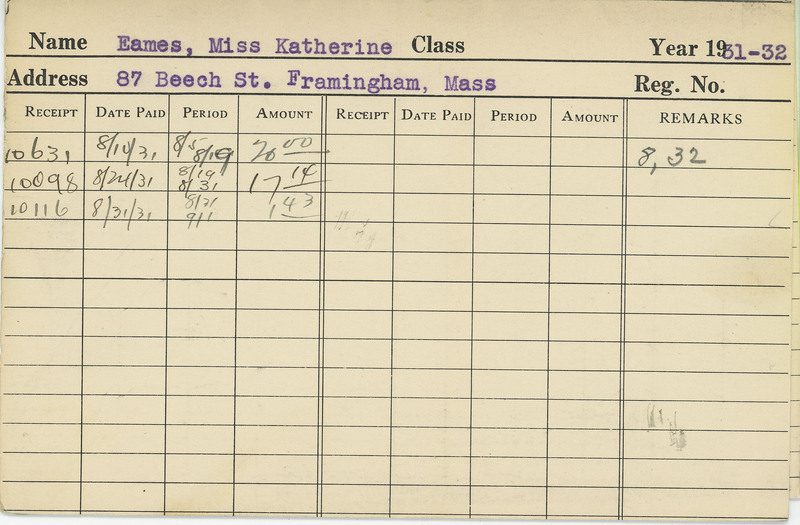 Name Eames, Miss Katherine Class Year 1931-32
Address 87 Beech St. Framingham, Mass Reg. No.
RECEIPT DATE PAID PERIOD AMOUNT RECEIPT DATE PAID PERIOD AMOUNT REMARKS
10631 8/10/31 8/5 8/19 20 00 8,32
10098 8/24/31 8/19 8/31 17 14
10116 8/31/31 8/31 9/1 1 43